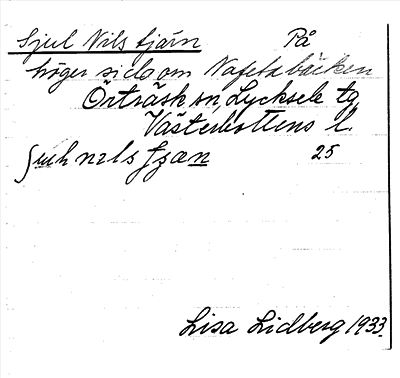 Sjul Nils tjärn På
höger sida om Nafetabäcken
Örträsk sn, Lycksele tg,
Västerbottens l.
nıls 25
Lisa Lidberg 1933.